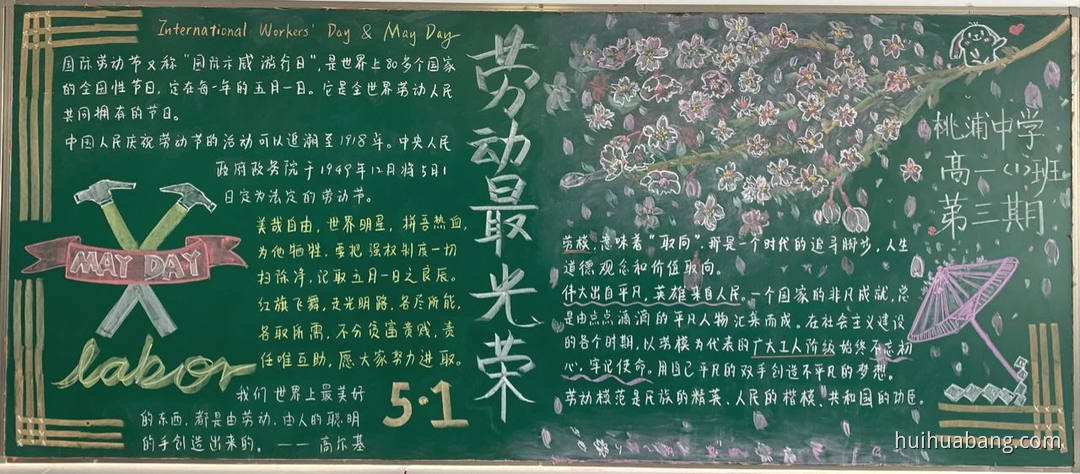 International Workers' Day & May Day
国际劳动节又称"国际示威游行日",是世界上80多个国家
的全国性节日,定在每年的五月一日。它是全世界劳动人民
共同拥有的节日。
中国人民庆祝劳动节的活动可以追溯至1918年。中央人民
政府政务院于1949年12月将5月1
日定为法定的劳动节。
美哉自由,世界明星,拼吾热血,
为他牺牲,要把强权制度一切
扫除净,记取五月一日之良辰。
红旗飞舞,走光明路,各尽所能,
各取所需,不分贫富贵贱,责
任唯互助,愿大家努力进取。
MAY DAY
labor
我们世界上最美好
的东西,都是由劳动、由人的聪明
的手创造出来的。——高尔基
5·1
劳动最光荣
桃浦中学
高一(1)班
第三期
劳模,意味着"取向",那是一个时代的追寻脚步,人生
道德观念和价值取向。
伟大出自平凡,英雄来自人民。一个国家的非凡成就,总
是由点点滴滴的平凡人物汇集而成。在社会主义建设
的各个时期,以劳模为代表的广大工人阶级始终不忘初
心、牢记使命。用自己平凡的双手创造不平凡的梦想。
劳动模范是民族的精英、人民的楷模、共和国的功臣。
huihuabang.com